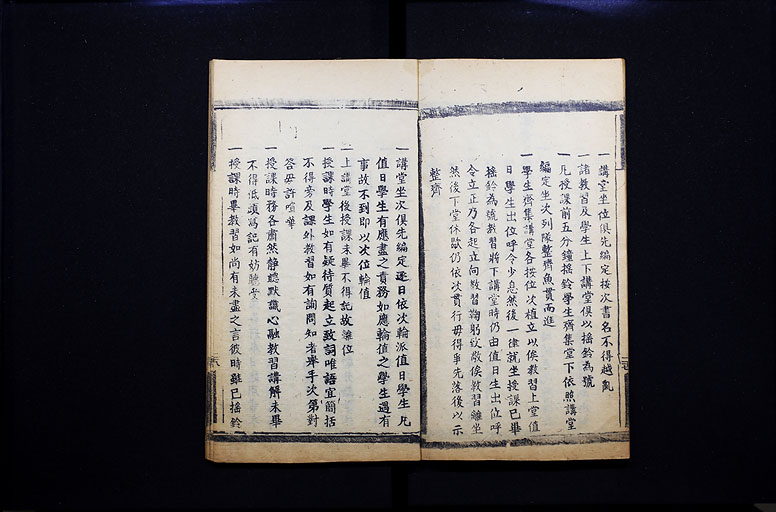 一講堂坐位俱先編定按次書名不得越亂
一諸教習及學生上下講堂俱以搖鈴為號
一凡授課前五分鐘搖鈴學生齊集堂下依照講堂
編定坐次列隊整齊魚貫而進
一學生齊集講堂各按位次植立以俟教習上堂值
日學生出位呼令少息然後一律就坐授課已畢
搖鈴為號教習將下講堂時仍由值日生出位呼
令立正乃各起立向教習鞠躬致敬俟教習離坐
然後下堂休歇仍依次貫行毋得爭先落後以示
整齊
一講堂坐次俱先編定逐日依次輪派值日學生凡
值日學生有應盡之責務如應輪值之學生遇有
事故不到即以次位輪值
一上講堂後授課未畢不得託故離位
一授課時學生如有疑待質起立致詞唯語宜簡括
不得旁及課外教習如有詢問知者舉手次第對
答毋許喧嘩
一授課時務各肅然静聽默識心融教習講解未畢
不得低頭寫記有妨聽受
一授課時畢教習如尚有未盡之言彼時雖已搖鈴